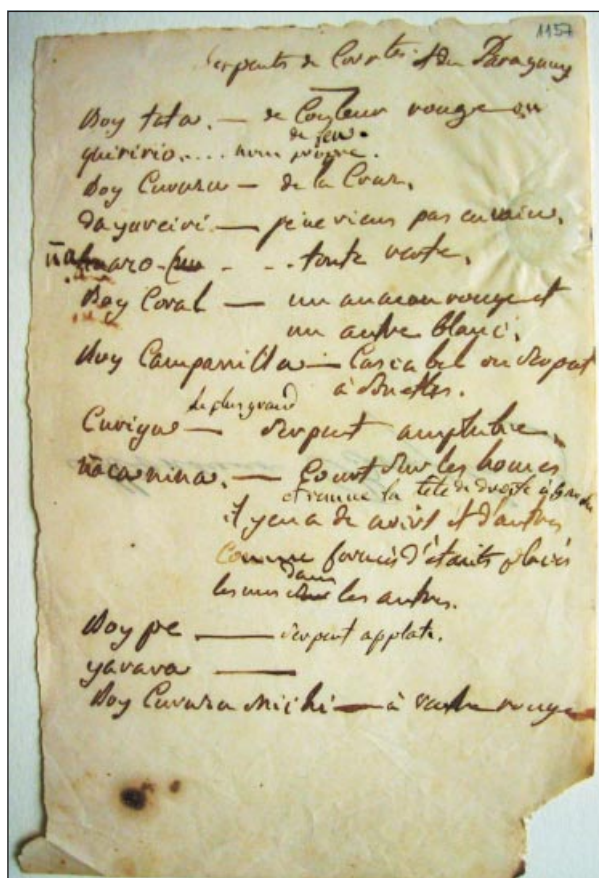 1157
Serpents de Corrtes et du Paraguay
Boy tata. — de Couleur rouge ou
de feu.
quiririo.... nom propre.
Boy Curuzu — de la Croix.
— je ne viens pas en vain.
- . . toute verte.
Boy Coral — un anneau rouge et
un autre blanc.
Boy Campanilla — Cascabel ou Serpent
à Sonettes.
le plus grand
Curiyu — Serpent amphibie.
ñacanina. — Court sur les homes
et remue la tête de droite à gauche
il y en a de noirs et d'autres
comme formés d'étuits placés
dans
les uns les autres.
Boy pe — Serpent applati.
yarara —
Boy Curuzu michi — à ventre rouge